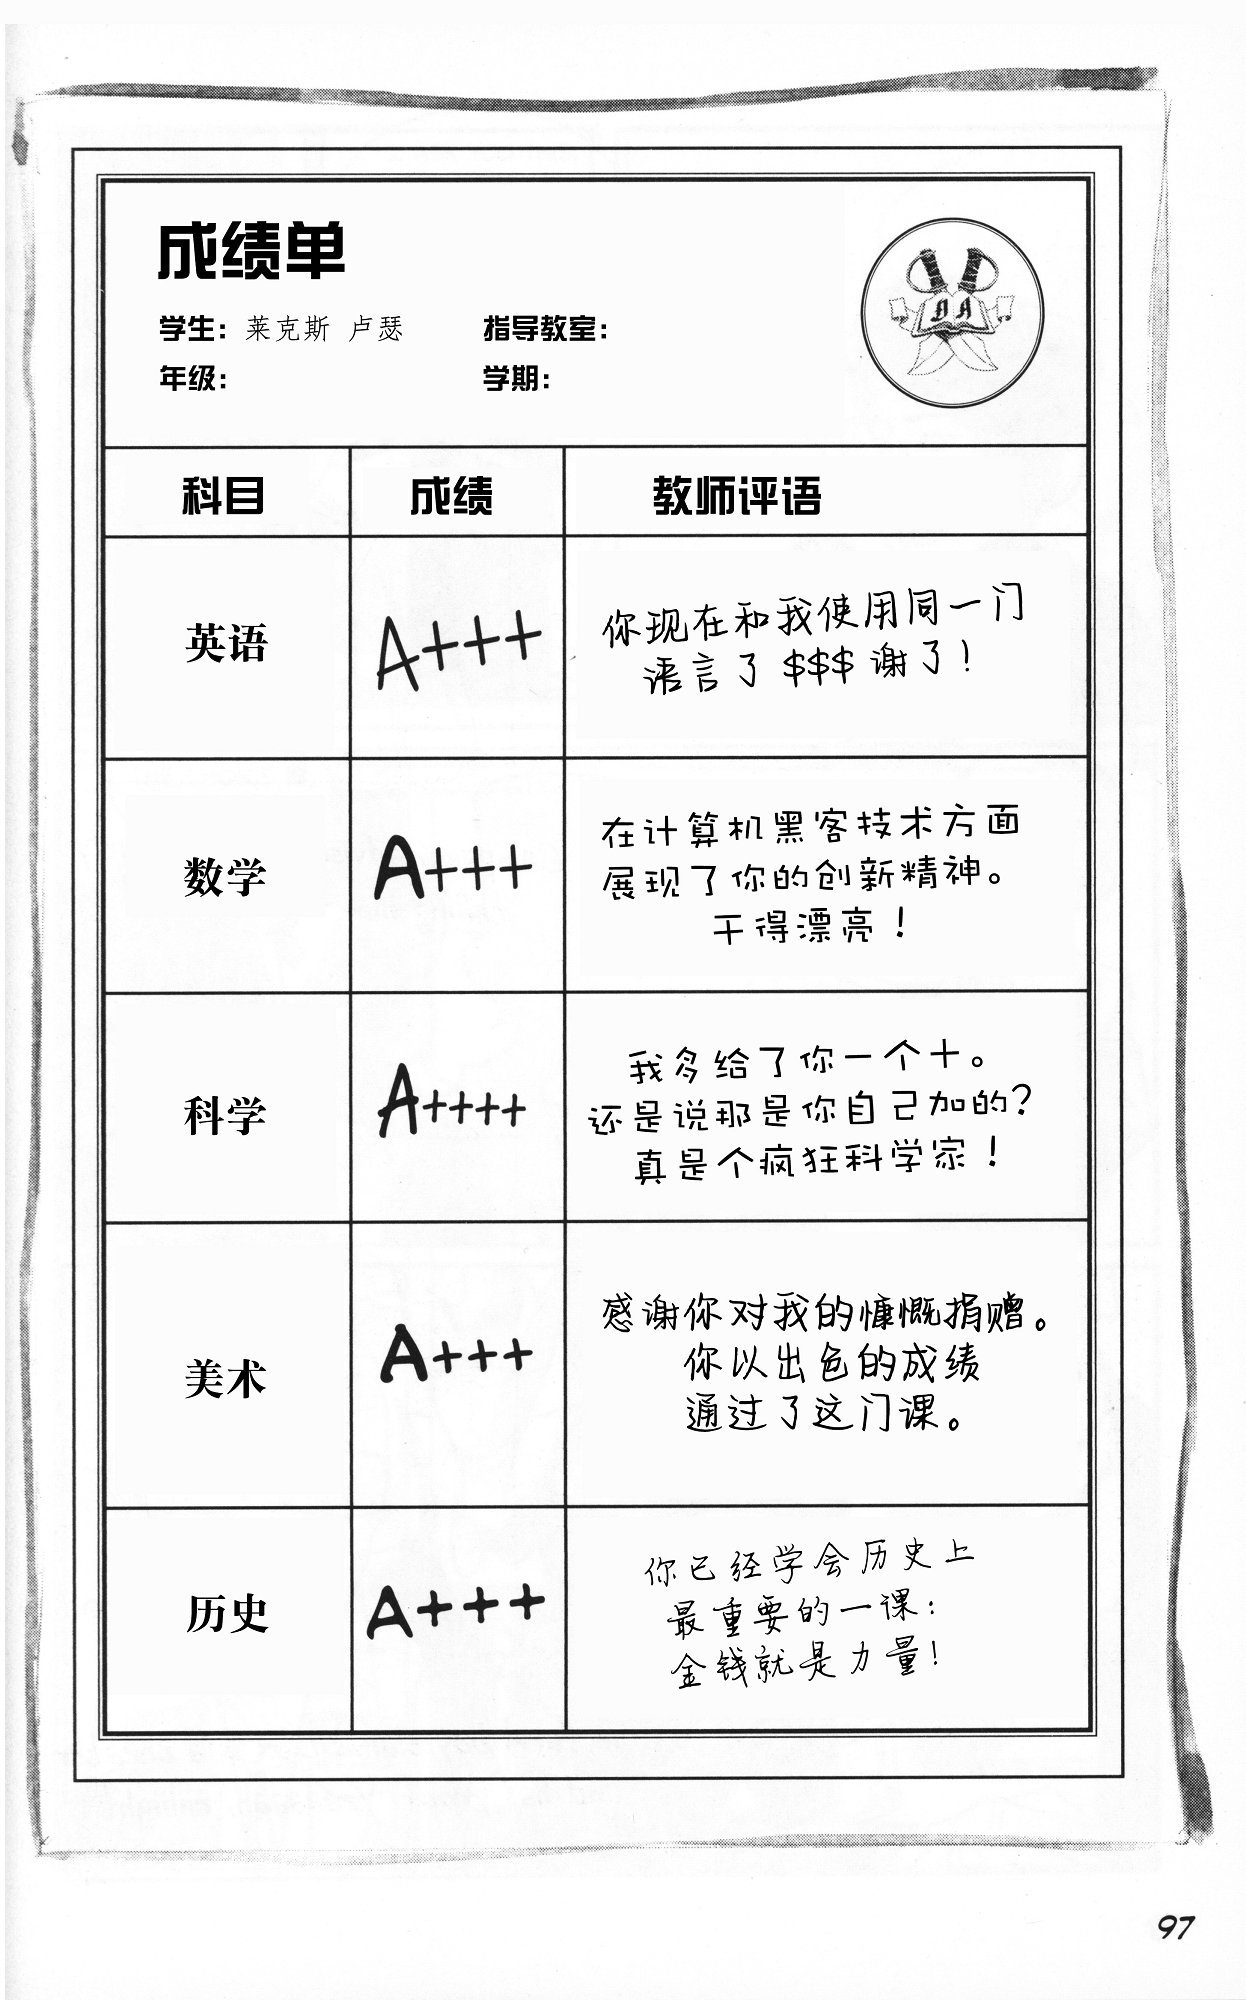 成绩单
学生：莱克斯 卢瑟
指导教室：
年级：
学期：
D A
科目
成绩
教师评语
英语
A+++
你现在和我使用同一门
语言了 $$$ 谢了！
数学
A+++
在计算机黑客技术方面
展现了你的创新精神。
干得漂亮！
科学
A++++
我多给了你一个十。
还是说那是你自己加的？
真是个疯狂科学家！
美术
A+++
感谢你对我的慷慨捐赠。
你以出色的成绩
通过了这门课。
历史
A+++
你已经学会历史上
最重要的一课：
金钱就是力量！
97